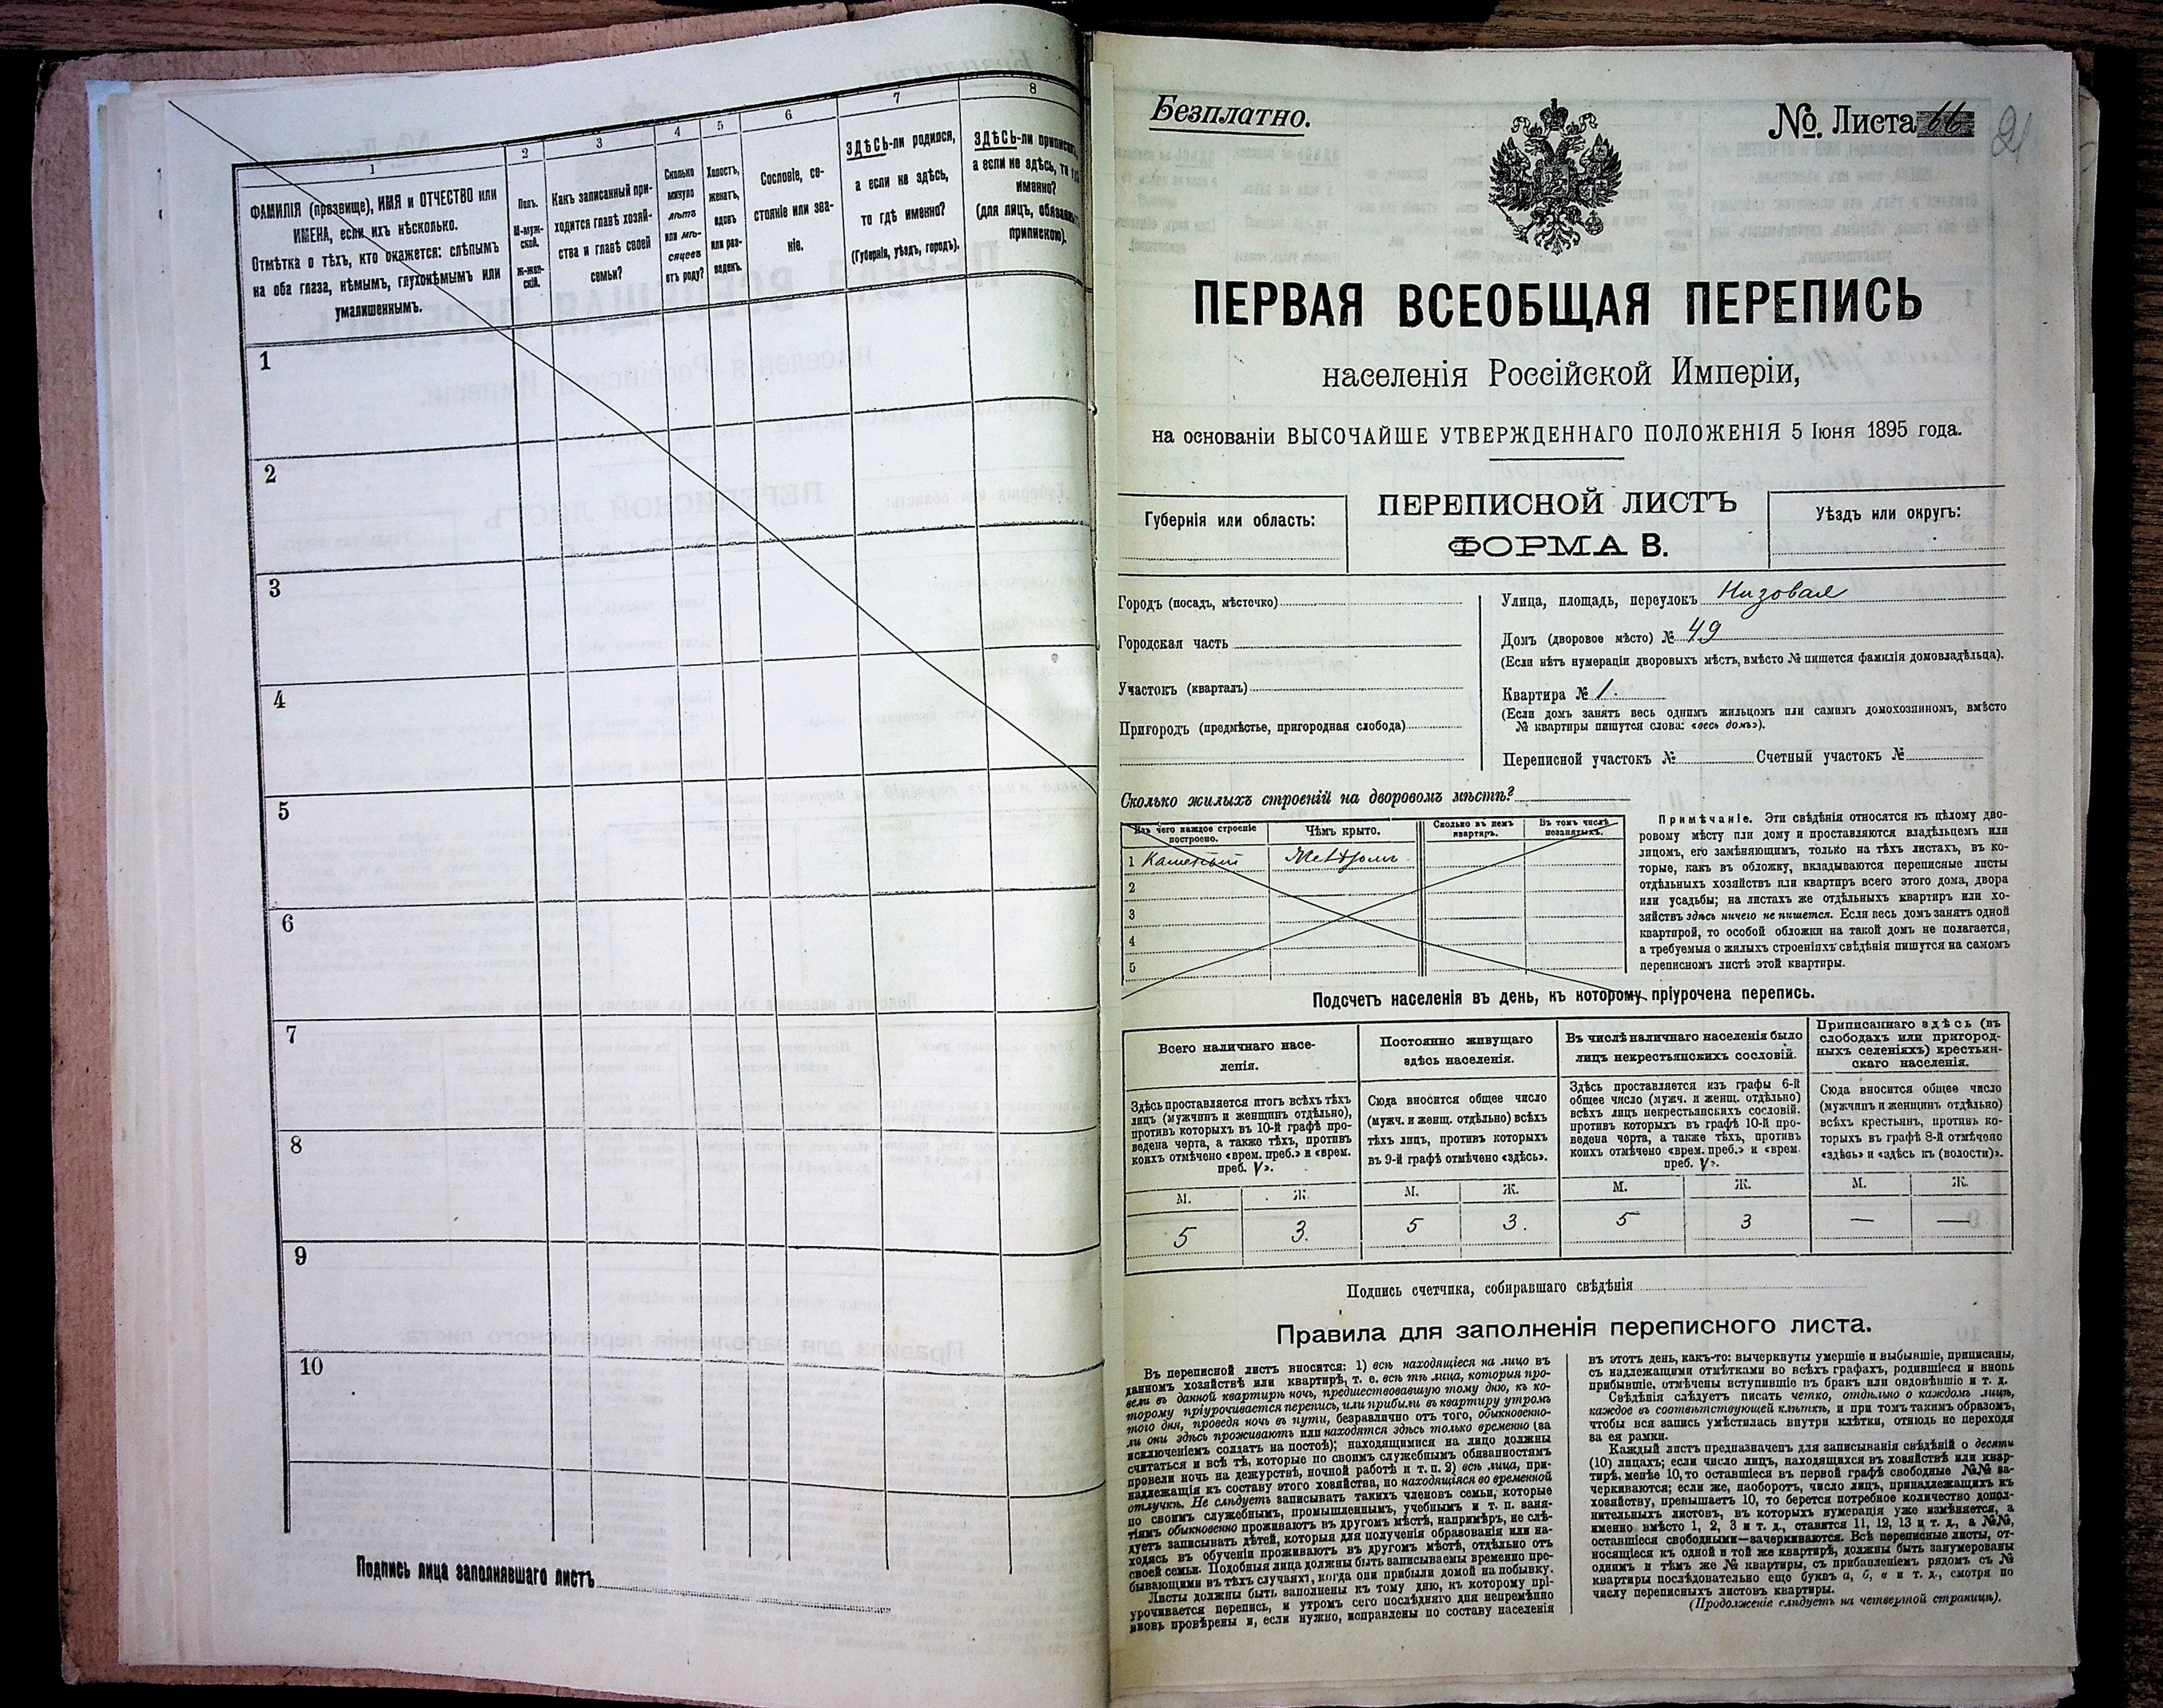 1
2
3
4
5
6
7
8
ФАМИЛІЯ (прозвище), ИМЯ и ОТЧЕСТВО или
ИМЕНА, если ихъ нѣсколько.
Отмѣтка о тѣхъ, кто окажется: слѣпымъ
на оба глаза, нѣмымъ, глухонѣмымъ или
умалишеннымъ.
Полъ.
М-муж-
ской.
Ж-жен-
скій.
Какъ записанный при-
ходится главѣ хозяй-
ства и главѣ своей
семьи?
Сколько
минуло
лѣтъ
или мѣ-
сяцевъ
отъ роду?
Холостъ,
женатъ,
вдовъ
или раз-
веденъ.
Сословіе, со-
стояніе или зва-
ніе.
ЗДѢСЬ-ли родился,
а если не здѣсь,
то гдѣ именно?
(Губернія, уѣздъ, городъ).
ЗДѢСЬ-ли
а если не здѣсь,
именно?
(для лицъ,
припискою).
1
2
3
4
5
6
7
8
9
10
Подпись лица заполнявшаго листъ
Безплатно.
№. Листа 66
21
ПЕРВАЯ ВСЕОБЩАЯ ПЕРЕПИСЬ
населенія Россійской Имперіи,
на основаніи ВЫСОЧАЙШЕ УТВЕРЖДЕННАГО ПОЛОЖЕНІЯ 5 Іюня 1895 года.
Губернія или область:
ПЕРЕПИСНОЙ ЛИСТЪ
ФОРМА В.
Уѣздъ или округъ:
Городъ (посадъ, мѣстечко)
Городская часть
Участокъ (кварталъ)
Пригородъ (предмѣстье, пригородная слобода)
Улица, площадь, переулокъ Низовая
Домъ (дворовое мѣсто) № 49
(Если нѣтъ нумераціи дворовыхъ мѣстъ, вмѣсто № пишется фамилія домовладѣльца).
Квартира № 1.
(Если домъ занятъ весь однимъ жильцомъ или самимъ домохозяиномъ, вмѣсто
№ квартиры пишутся слова: «весь домъ»).
Переписной участокъ № Счетный участокъ №
Сколько жилыхъ строеній на дворовомъ мѣстѣ?
Изъ чего каждое строеніе
построено.
Чѣмъ крыто.
Сколько въ немъ
квартиръ.
Въ томъ числѣ
незанятыхъ.
1 Каменный
2
3
4
5
Примѣчаніе. Эти свѣдѣнія относятся къ цѣлому дво-
ровому мѣсту или дому и проставляются владѣльцемъ или
лицомъ, его замѣняющимъ, только на тѣхъ листахъ, въ ко-
торые, какъ въ обложку, вкладываются переписные листы
отдѣльныхъ хозяйствъ или квартиръ всего этого дома, двора
или усадьбы; на листахъ же отдѣльныхъ квартиръ или хо-
зяйствъ здѣсь ничего не пишется. Если весь домъ занятъ одной
квартирой, то особой обложки на такой домъ не полагается,
а требуемыя о жилыхъ строеніяхъ свѣдѣнія пишутся на самомъ
переписномъ листѣ этой квартиры.
Подсчетъ населенія въ день, къ которому пріурочена перепись.
Всего наличнаго насе-
ленія.
Здѣсь проставляется итогъ всѣхъ тѣхъ
лицъ (мужчинъ и женщинъ отдѣльно),
противъ которыхъ въ 10-й графѣ про-
ведена черта, а также тѣхъ, противъ
коихъ отмѣчено «врем. преб.» и «врем.
преб. V».
Постоянно живущаго
здѣсь населенія.
Сюда вносится общее число
(мужч. и женщ. отдѣльно) всѣхъ
тѣхъ лицъ, противъ которыхъ
въ 9-й графѣ отмѣчено «здѣсь».
Въ числѣ наличнаго населенія было
лицъ некрестьянскихъ сословій.
Здѣсь проставляется изъ графы 6-й
общее число (мужч. и женщ. отдѣльно)
всѣхъ лицъ некрестьянскихъ сословій.
противъ которыхъ въ графѣ 10-й про-
ведена черта, а также тѣхъ, противъ
коихъ отмѣчено «врем. преб.» и «врем.
преб. V».
Приписаннаго здѣсь (въ
слободахъ или пригород-
ныхъ селеніяхъ) крестьян-
скаго населенія.
Сюда вносится общее число
(мужчинъ и женщинъ отдѣльно)
всѣхъ крестьянъ, противъ ко-
торыхъ въ графѣ 8-й отмѣчено
«здѣсь» и «здѣсь къ (волости)».
М. Ж. М. Ж. М. Ж. М. Ж.
5 3. 5 3. 5 3 — —
Подпись счетчика, собиравшаго свѣдѣнія
Правила для заполненія переписного листа.
Въ переписной листъ вносятся: 1) всѣ находящіеся на лицо въ
данномъ хозяйствѣ или квартирѣ, т. е. всѣ тѣ лица, которыя про-
вели въ данной квартирѣ ночь, предшествовавшую тому дню, къ ко-
торому пріурочивается перепись, или прибыли въ квартиру утромъ
того дня, проведя ночь въ пути, безразлично отъ того, обыкновенно-
ли они здѣсь проживаютъ или находятся здѣсь только временно (за
исключеніемъ солдатъ на постоѣ); находящимися на лицо должны
считаться и всѣ тѣ, которые по своимъ служебнымъ обязанностямъ
провели ночь на дежурствѣ, ночной работѣ и т. п. 2) всѣ лица, при-
надлежащія къ составу этого хозяйства, но находящіяся во временной
отлучкѣ. Не слѣдуетъ записывать такихъ членовъ семьи, которые
по своимъ служебнымъ, промышленнымъ, учебнымъ и т. п. заня-
тіямъ обыкновенно проживаютъ въ другомъ мѣстѣ, напримѣръ, не слѣ-
дуетъ записывать дѣтей, которыя для полученія образованія или на-
ходясь въ обученіи проживаютъ въ другомъ мѣстѣ, отдѣльно отъ
своей семьи. Подобныя лица должны быть записываемы временно пре-
бывающими въ тѣхъ случаяхъ, когда они прибыли домой на побывку.
Листы должны быть заполнены къ тому дню, къ которому прі-
урочивается перепись, и утромъ сего послѣдняго дня непремѣнно
вновь провѣрены и, если нужно, исправлены по составу населенія
въ этотъ день, какъ-то: вычеркнуты умершіе и выбывшіе, приписаны,
съ надлежащими отмѣтками во всѣхъ графахъ, родившіеся и вновь
прибывшіе, отмѣчены вступившіе въ бракъ или овдовѣвшіе и т. д.
Свѣдѣнія слѣдуетъ писать четко, отдѣльно о каждомъ лицѣ,
каждое въ соотвѣтствующей клѣткѣ, и при томъ такимъ образомъ,
чтобы вся запись умѣстилась внутри клѣтки, отнюдь не переходя
за ея рамки.
Каждый листъ предназначенъ для записыванія свѣдѣній о десяти
(10) лицахъ; если число лицъ, находящихся въ хозяйствѣ или квар-
тирѣ, менѣе 10, то оставшіеся въ первой графѣ свободные №№ за-
черкиваются; если же, наоборотъ, число лицъ, принадлежащихъ къ
хозяйству, превышаетъ 10, то берется потребное количество допол-
нительныхъ листовъ, въ которыхъ нумерація уже измѣняется, а
именно вмѣсто 1, 2, 3 и т. д., ставится 11, 12, 13 и т. д., а №№,
оставшіеся свободными—зачеркиваются. Всѣ переписные листы, от-
носящіеся къ одной и той же квартирѣ, должны быть занумерованы
однимъ и тѣмъ же № квартиры, съ прибавленіемъ рядомъ съ №
квартиры послѣдовательно еще буквъ а, б, в и т. д., смотря по
числу переписныхъ листовъ квартиры.
(Продолженіе слѣдуетъ на четвертой страницѣ).